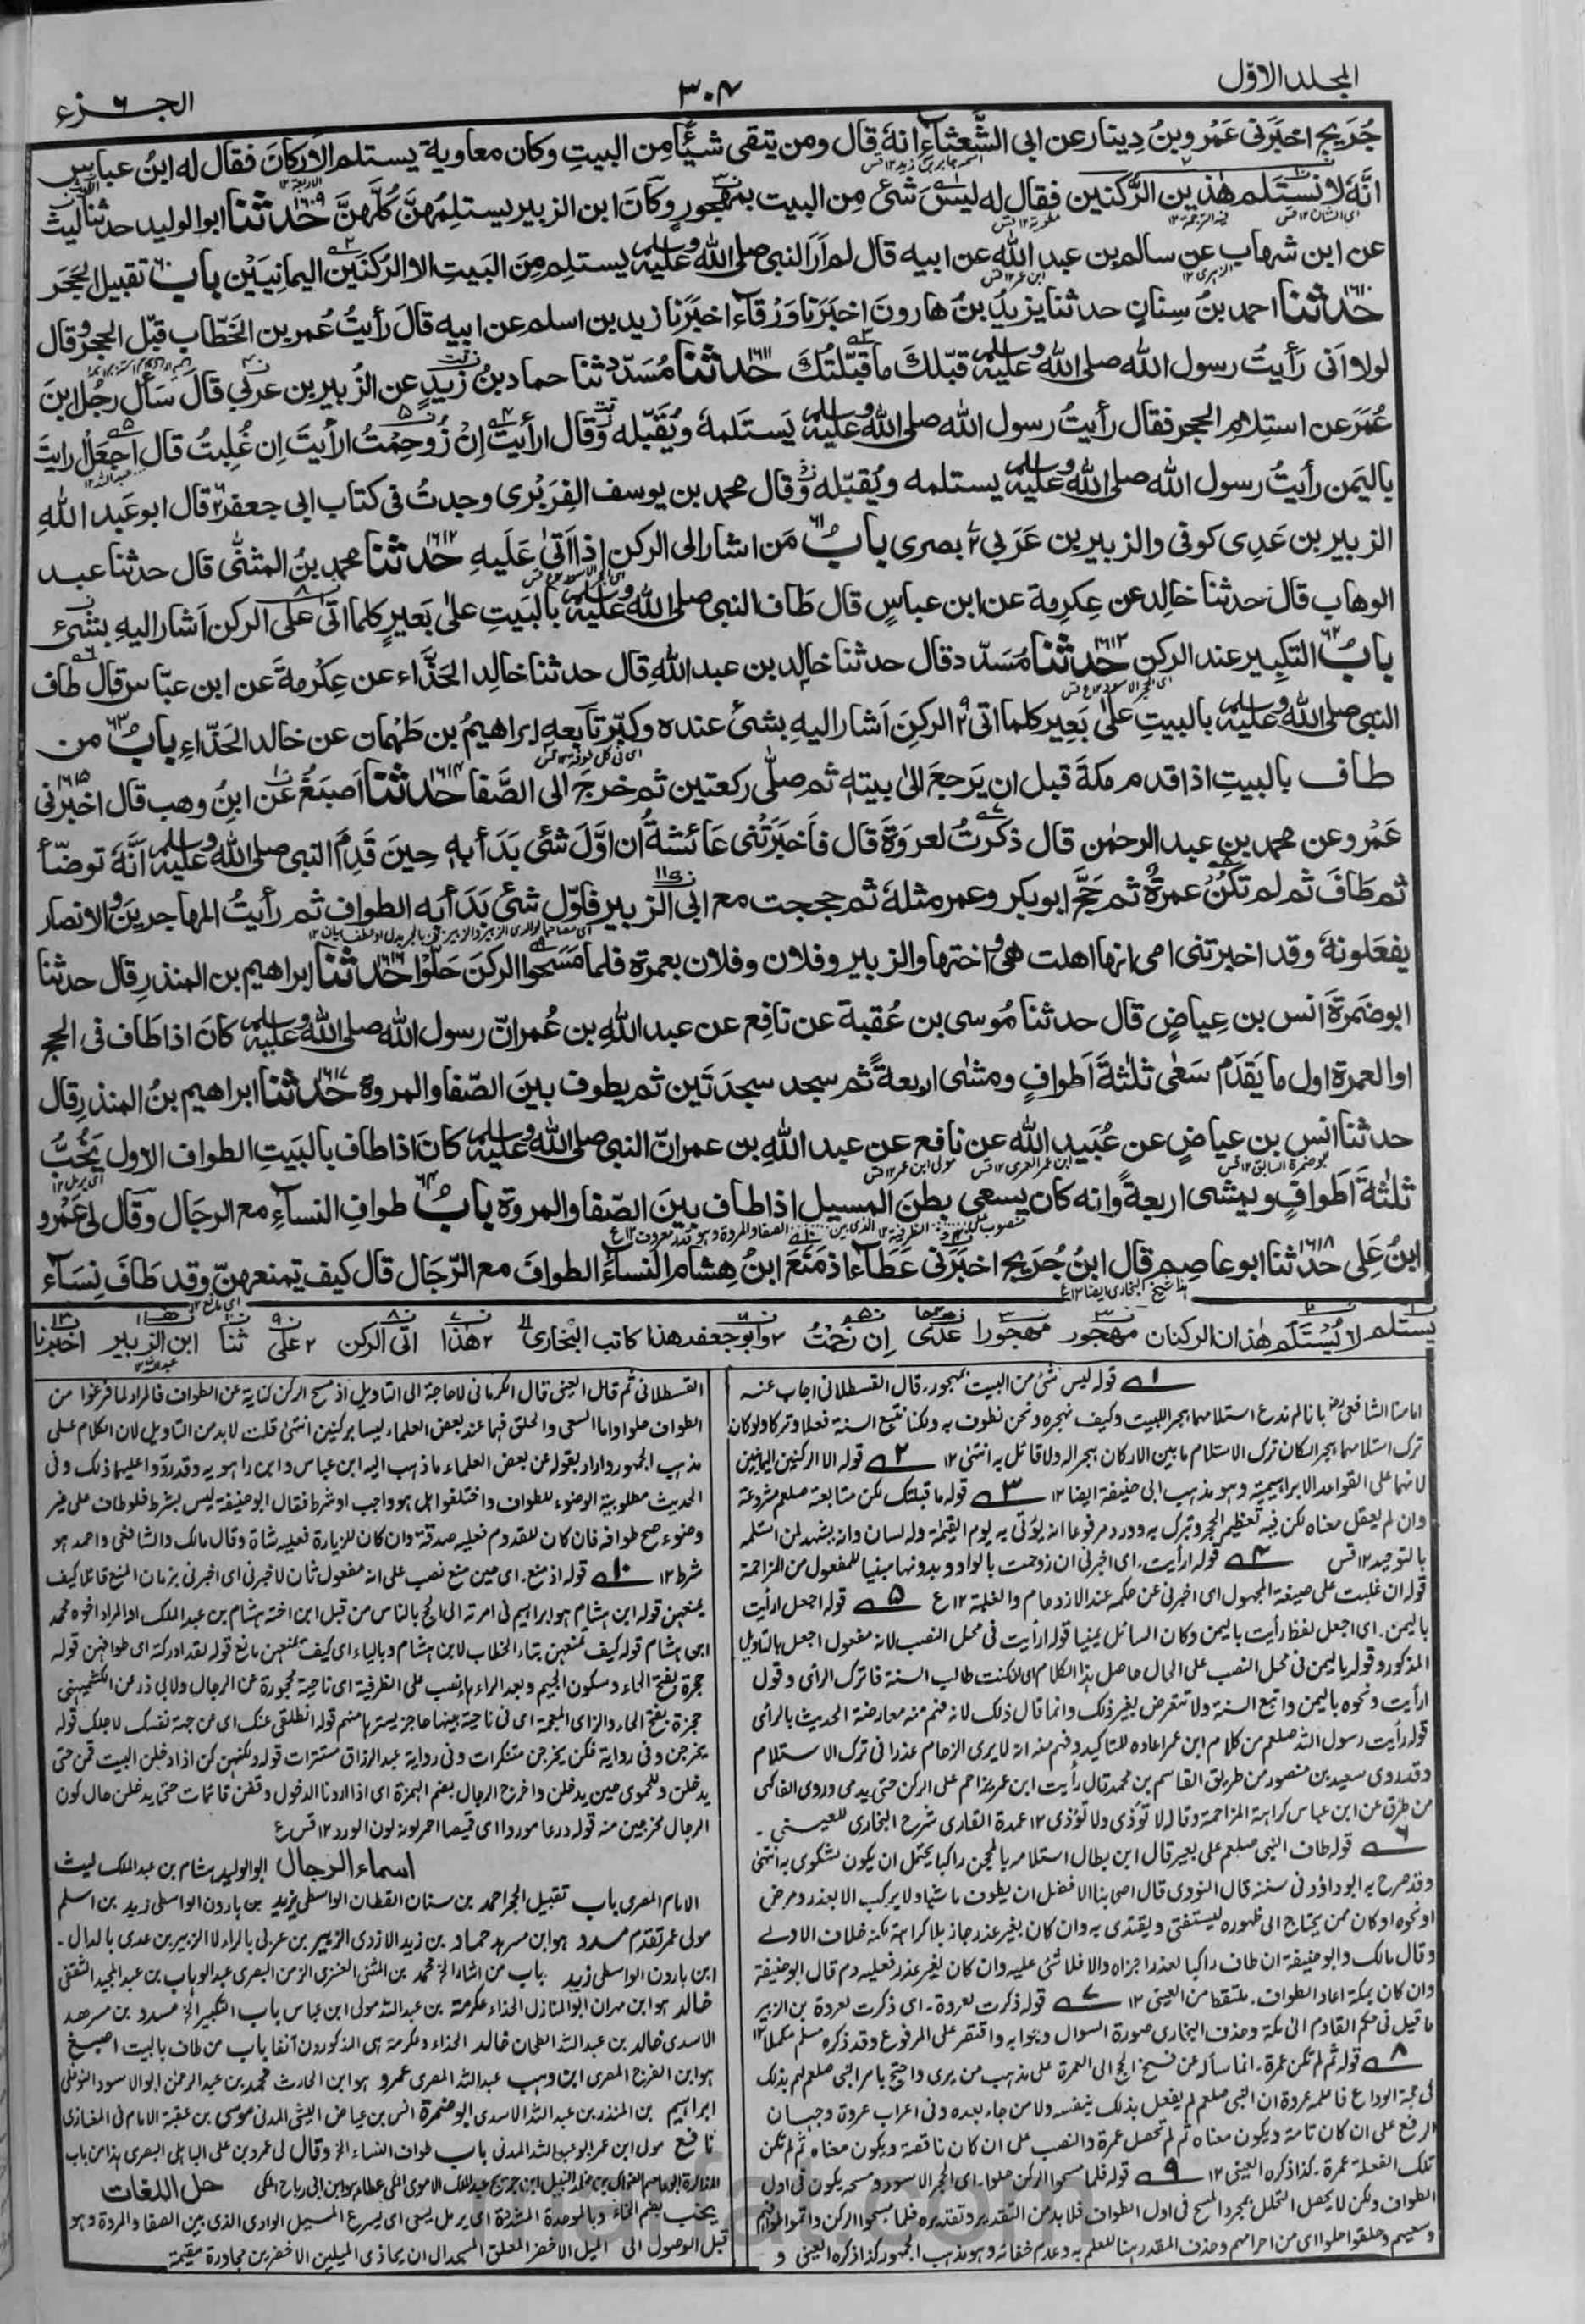 المجلد الاول
٣٠٨
الجزء ٦
جُرَيج اخبَرَنى عَمْرو بنُ دِينار عن ابى الشَّعثاء انهٗ قال ومن يتقى شيئًا مِن البيتِ وكان معاوية يستلم الاَركانَ فقال له ابنُ عباس
انَّهٗ لا نَستَلم هٰذين الرُّكنين فقال له ليسَ شئ مِن البيت بمهجورٍ وكانَ ابن الزبير يستلِمُهنَّ كُلَّهنَّ ١٦٠٩ حدثنا ابو الوليد حدثنا ليث
عن ابن شهاب عن سالم بن عبد الله عن ابيه قال لم اَرَ النبى صلى الله عليه وسلم يستلم مِنَ البَيتِ الا الركنَين اليمانِيَيْن باب تقبيل الحَجَر
١٦١٠ حدثنا احمد بنُ سِنانٍ حدثنا يزيدُ بنُ هارونَ اخبَرَنا وَرْقاء اخبَرَنا زيد بن اسلم عن ابيه قالَ رأيتُ عُمر بن الخَطّاب قبّل الحجر وقال
لولا اَنى رَأيتُ رسول الله صلى الله عليه وسلم قبّلكَ ما قبّلتُكَ ١٦١١ حدثنا مُسَدّد ثنا حماد بنُ زَيدٍ عن الزُبير بن عربي قالَ سَأل رجُل ابنَ
عُمَرَ عن استِلام الحجر فقال رأيتُ رسول الله صلى الله عليه وسلم يَستَلمهٗ ويُقَبّله وقال ارأيتَ اِنْ زُوحِمْتُ ارأيتَ اِن غُلِبتُ قال اجعَلْ ارايتَ
باليَمن رأيتُ رسول الله صلى الله عليه وسلم يستلمه ويُقبّله وقال محمد بن يوسف الفِرَبْرى وجدتُ فى كتاب ابى جعفر قال ابو عَبد اللهِ
الزبير بن عَدِى كوفى والزبير بن عَرَبى بصرى باب مَن اشار الى الركن اذا اَتىٰ عَلَيهِ ١٦١٢ حدثنا محمد بنُ المثنّٰى قال حدثنا عبد
الوهاب قال حدثنا خالِد عن عِكرِمة عن ابن عباسٍ قال طَاف النبى صلى الله عليه وسلم بالبَيتِ علىٰ بَعيرٍ كلما اتىٰ على الركن اَشار اليهِ بشئ
باب التكبِير عند الركن ١٦١٣ حدثنا مُسَدّد قال حدثنا خالِد بن عبد اللهِ قال حدثنا خالِد الحَذّاء عن عِكْرمةَ عن ابن عبّاس قال طاف
النبى صلى الله عليه وسلم بالبيتِ علىٰ بَعِير كلما اتى الركنَ اَشار اليهِ بشئ عنده وكبّر تابعه ابراهيمُ بن طَهْمان عن خالد الحَذّاءِ باب من
طاف بالبيتِ اذا قدم مكةَ قبل ان يَرجعَ الىٰ بيتهٖ ثم صلّى ركعتين ثم خرجَ الى الصَّفا ١٦١٤ حدثنا اَصبَغُ عَن ابنِ وهب قال اخبرنى
عَمْرو عن محمد بن عبد الرحمٰن قال ذكرتُ لعروَةَ قال فاَخبَرَتْنى عَائشةُ ان اوَّلَ شئ بَدَأ بهٖ حِينَ قَدِمَ النبى صلى الله عليه وسلم انَّهٗ توضّأ
ثم طَافَ ثم لم تكنْ عمرةٌ ثم حَجَّ ابو بكر وعمر مثلهٗ ثم حججت مع ابى الزبير فاوّل شئ بَدَأ به الطواف ثم رأيتُ المهاجرينَ والانصار
يفعَلونهٗ وقد اخبرتنى امى انها اهلت هى واختها والزبير وفلان وفلان بعمرة فلما مَسَحوا الركنَ حَلّوا ١٦١٦ حدثنا ابراهيم بن المنذر قال حدثنا
ابو ضَمرَةَ انس بن عِياضٍ قال حدثنا مُوسى بن عُقبة عن نافِع عن عبد اللهِ بن عُمر انّ رسول الله صلى الله عليه وسلم كانَ اذا طَاف فى الحج
او العمرة اول ما يَقدَم سَعٰى ثلٰثةَ اَطوافٍ ومشٰى اربعةً ثم سجد سجدَتَين ثم يطوف بينَ الصّفا والمروة ١٦١٧ حدثنا ابراهيم بنُ المنذر قال
حدثنا انس بن عياضٍ عن عُبَيد الله عن نافع عن عبد اللهِ بن عمر انّ النبى صلى الله عليه وسلم كانَ اذا طاف بالبَيتِ الطواف الاول يَخُبُّ
ثلٰثةَ اَطوافٍ ويمشى اربعةً وانه كان يسعى بطنَ المسيل اذا طاف بينَ الصّفا والمروة باب طوافِ النساءِ مع الرجَال وقال لى عَمْرو
ابنُ عَلى ١٦١٨ حدثنا ابو عاصِم قال ابنُ جُرَيج اخبَرَنى عَطَاء اذ مَنَعَ ابنُ هِشام النساءَ الطوافَ مع الرّجَال قال كيف تمنعهنّ وقد طَافَ نِسَاء
يستلم لا يُسْتَلَم هٰذان الركنان مهجور مهجورا عَدِى اِن زُحِمْتُ وابو جعفر هذا كاتب البخارى هٰذا اتى الركن على ثنا ابن الزبير اخبرنا
١ قوله ليس شئ من البيت بمهجور. قال القسطلانى اجاب عنه
امامنا الشافعى بانا لم ندع استلامهما هجرا للبيت وكيف نهجره ونحن نطوف به ولكنا نتبع السنة فعلا وتركا ولو كان
ترك استلامهما هجرا لكان ترك الاستلام ما بين الاركان هجرا له ولا قائل به انتهى ١٢ ٢ قوله الا الركنين اليمانيين
لانهما على القواعد الابراهيمية وهو مذهب ابى حنيفة ايضا ١٢ ٣ قوله ما قبلتك لكن متابعته صلعم مشروعة
وان لم يعقل معناه لكن فيه تعظيم الحجر وتبرك به وورد مرفوعا انه يؤتى به يوم القيمة وله لسان وانه يشهد لمن استلمه
بالتوحيد ١٢ قس ٤ قوله ارأيت. اى اخبرنى ان زوحمت بالواو وبدونها مبنيا للمفعول من المزاحمة
قوله ان غلبت على صيغة المجهول اى اخبرنى عن حكمه عند الازدحام والغلبة ١٢ ع ٥ قوله اجعل ارأيت
باليمن. اى اجعل لفظ ارأيت باليمن وكان السائل يمنيا قوله ارأيت فى محل النصب لانه مفعول اجعل بالتاويل
المذكور وقوله باليمن فى محل النصب على الحال حاصل هذا الكلام اى اذا كنت طالب السنة فاترك الراى وقول
ارأيت ونحوه باليمن واتبع السنة ولا تتعرض بغير ذلك وانما قال ذلك لانه فهم منه معارضة الحديث بالرأى
قوله رأيت رسول الله صلعم من كلام ابن عمر اعاده للتاكيد وفهم منه انه لا يرى الزحام عذرا فى ترك الاستلام
وقد روى سعيد بن منصور من طريق القاسم بن محمد قال رأيت ابن عمر يزاحم على الركن حتى يدمى وروى الفاكهى
من طرق عن ابن عباس كراهة المزاحمة وقال لا تؤذى ولا تؤذى ١٢ عمدة القارى شرح البخارى للعينى.
٦ قوله طاف النبى صلعم على بعير قال ابن بطال استلامه بالمحجن راكبا يحتمل ان يكون لشكوى به انتهى
وقد صرح به ابو داؤد فى سننه قال النووى قال اصحابنا الافضل ان يطوف ماشيا ولا يركب الا بعذر ومرض
او نحوه او كان ممن يحتاج الى ظهوره ليستفتى ويقتدى به وان كان بغير عذر جاز بلا كراهة لكنه خلاف الاولى
وقال مالك وابو حنيفة ان طاف راكبا لعذر اجزاه ولا شئ عليه وان كان لغير عذر فعليه دم قال ابو حنيفة
وان كان بمكة اعاد الطواف. ملتقطا من العينى ١٢ ٧ قوله ذكرت لعروة. اى ذكرت لعروة بن الزبير
ما قيل فى حكم القادم الى مكة وحذف البخارى صورة السوال وجوابه واقتصر على المرفوع وقد ذكره مسلم مكملا ١٢
٨ قوله ثم لم تكن عمرة. انما سأله عن فسخ الحج الى العمرة على مذهب من يرى واحتج بامر النبى صلعم لهم بذلك
فى حجة الوداع فاعلمه عروة ان النبى صلعم لم يفعل بذلك بنفسه ولا من جاء بعده وفى اعراب عروة وجهان
الرفع على ان كان تامة ويكون معناه ثم لم تحصل عمرة والنصب على ان كان ناقصة ويكون معناه ثم لم تكن
تلك الفعلة عمرة. كذا ذكره العينى ١٢ ٩ قوله فلما مسحوا الركن حلوا. اى الحجر الاسود ومسحه يكون فى اول
الطواف ولكن لا يحصل التحلل بمجرد المسح فى اول الطواف فلا بد من التقدير وتقديره فلما مسحوا الركن واتموا طوافهم
وسعيهم وحلقوا حلوا اى من احرامهم وحذف المقدر هنا للعلم به وعدم خفائه وهو مذهب الجمهور كذا ذكره العينى و
القسطلانى ثم قال العينى قال الكرمانى لا حاجة الى التاويل اذ مسح الركن كناية عن الطواف فالمراد لما فرغوا من
الطواف حلوا واما السعى والحلق فهما عند بعض العلماء ليسا بركنين انتهى قلت لا بد من التاويل لان الكلام على
مذهب الجمهور واراد بقوله عن بعض العلماء ما ذهب اليه ابن عباس وابن راهويه وقد ردوا عليهما ذلك وفى
الحديث مطلوبية الوضوء للطواف واختلفوا هل هو واجب او شرط فقال ابو حنيفة ليس بشرط فلو طاف على غير
وضوء صح طوافه فان كان للقدوم فعليه صدقة وان كان للزيارة فعليه شاة وقال مالك والشافعى واحمد هو
شرط ١٢ ١٠ قوله اذ منع. اى حين منع نصب على انه مفعول ثان لاخبرنى اى اخبرنى بزمان المنع قائلا كيف
يمنعهن قوله ابن هشام هو ابراهيم فى امرته الى الحج بالناس من قبل ابن اخته هشام بن عبد الملك او المراد اخوه محمد
ابن هشام قوله كيف تمنعهن بتاء الخطاب لابن هشام وبالياء اى كيف يمنعهن مانع قوله لقد ادركته اى طوافهن قوله
حجرة بفتح الحاء وسكون الجيم وبعد الراء هاء نصب على الظرفية اى ناحية محجورة عن الرجال ولابى ذر عن الكشميهنى
حجزة بفتح الحاء والزاى المعجمة اى فى ناحية بينها حاجز يسترها منهم قوله انطلقى عنك اى عن جهة نفسك لاجلك قوله
يخرجن وفى رواية فكن يخرجن متنكرات وفى رواية عبد الرزاق مستترات قوله ولكنهن كن اذا دخلن البيت قمن حتى
يدخلن وللحموى حين يدخلن واخرج الرجال بضم الهمزة اى اذا اردنا الدخول وقفن قائمات حتى يدخلن حال كون
الرجال مخرجين منه قوله درعا موردا اى قميصا احمر لونه لون الورد ١٢ قس ع
اسماء الرجال ابو الوليد هشام بن عبد الملك ليث
الامام المصرى باب تقبيل الحجر احمد بن سنان القطان الواسطى يزيد بن هارون الواسطى زيد بن اسلم
مولى عمر تقدم مسدد هو ابن مسرهد حماد بن زيد الازدى الزبير بن عربى بالراء لا الزبير بن عدى بالدال.
ابن هارون الواسطى زيد باب من اشار الخ محمد بن المثنى العنزى الزمن البصرى عبد الوهاب بن عبد المجيد الثقفى
خالد هو ابن مهران ابو المنازل الحذاء عكرمة بن عبد الله مولى ابن عباس باب التكبير الخ مسدد بن مسرهد
الاسدى خالد بن عبد الله الطحان خالد الحذاء وعكرمة هى المذكورون آنفا باب من طاف بالبيت اصبغ
هو ابن الفرج المصرى ابن وهب عبد الله المصرى عمرو هو ابن الحارث محمد بن عبد الرحمن ابو الاسود النوفلى
ابراهيم بن المنذر بن عبد الله الاسدى ابو ضمرة انس بن عياض الليثى المدنى موسى بن عقبة الامام فى المغازى
نافع مولى ابن عمر ابو عبد الله المدنى باب طواف النساء الخ وقال لى عمرو بن على الباهلى البصرى هذا من باب
المذاكرة ابو عاصم الضحاك بن مخلد النبيل ابن جريج عبد الملك الاموى المكى عطاء هو ابن ابى رباح المكى حل اللغات
يخب بضم الخاء وبالموحدة المشددة اى يرمل يسعى اى يسرع المسيل الوادى الذى بين الصفا والمروة وهو
قبل الوصول الى الميل الاخضر المعلق المسجد الى ان يحاذى الميلين الاخضرين مجاورة مقيمة